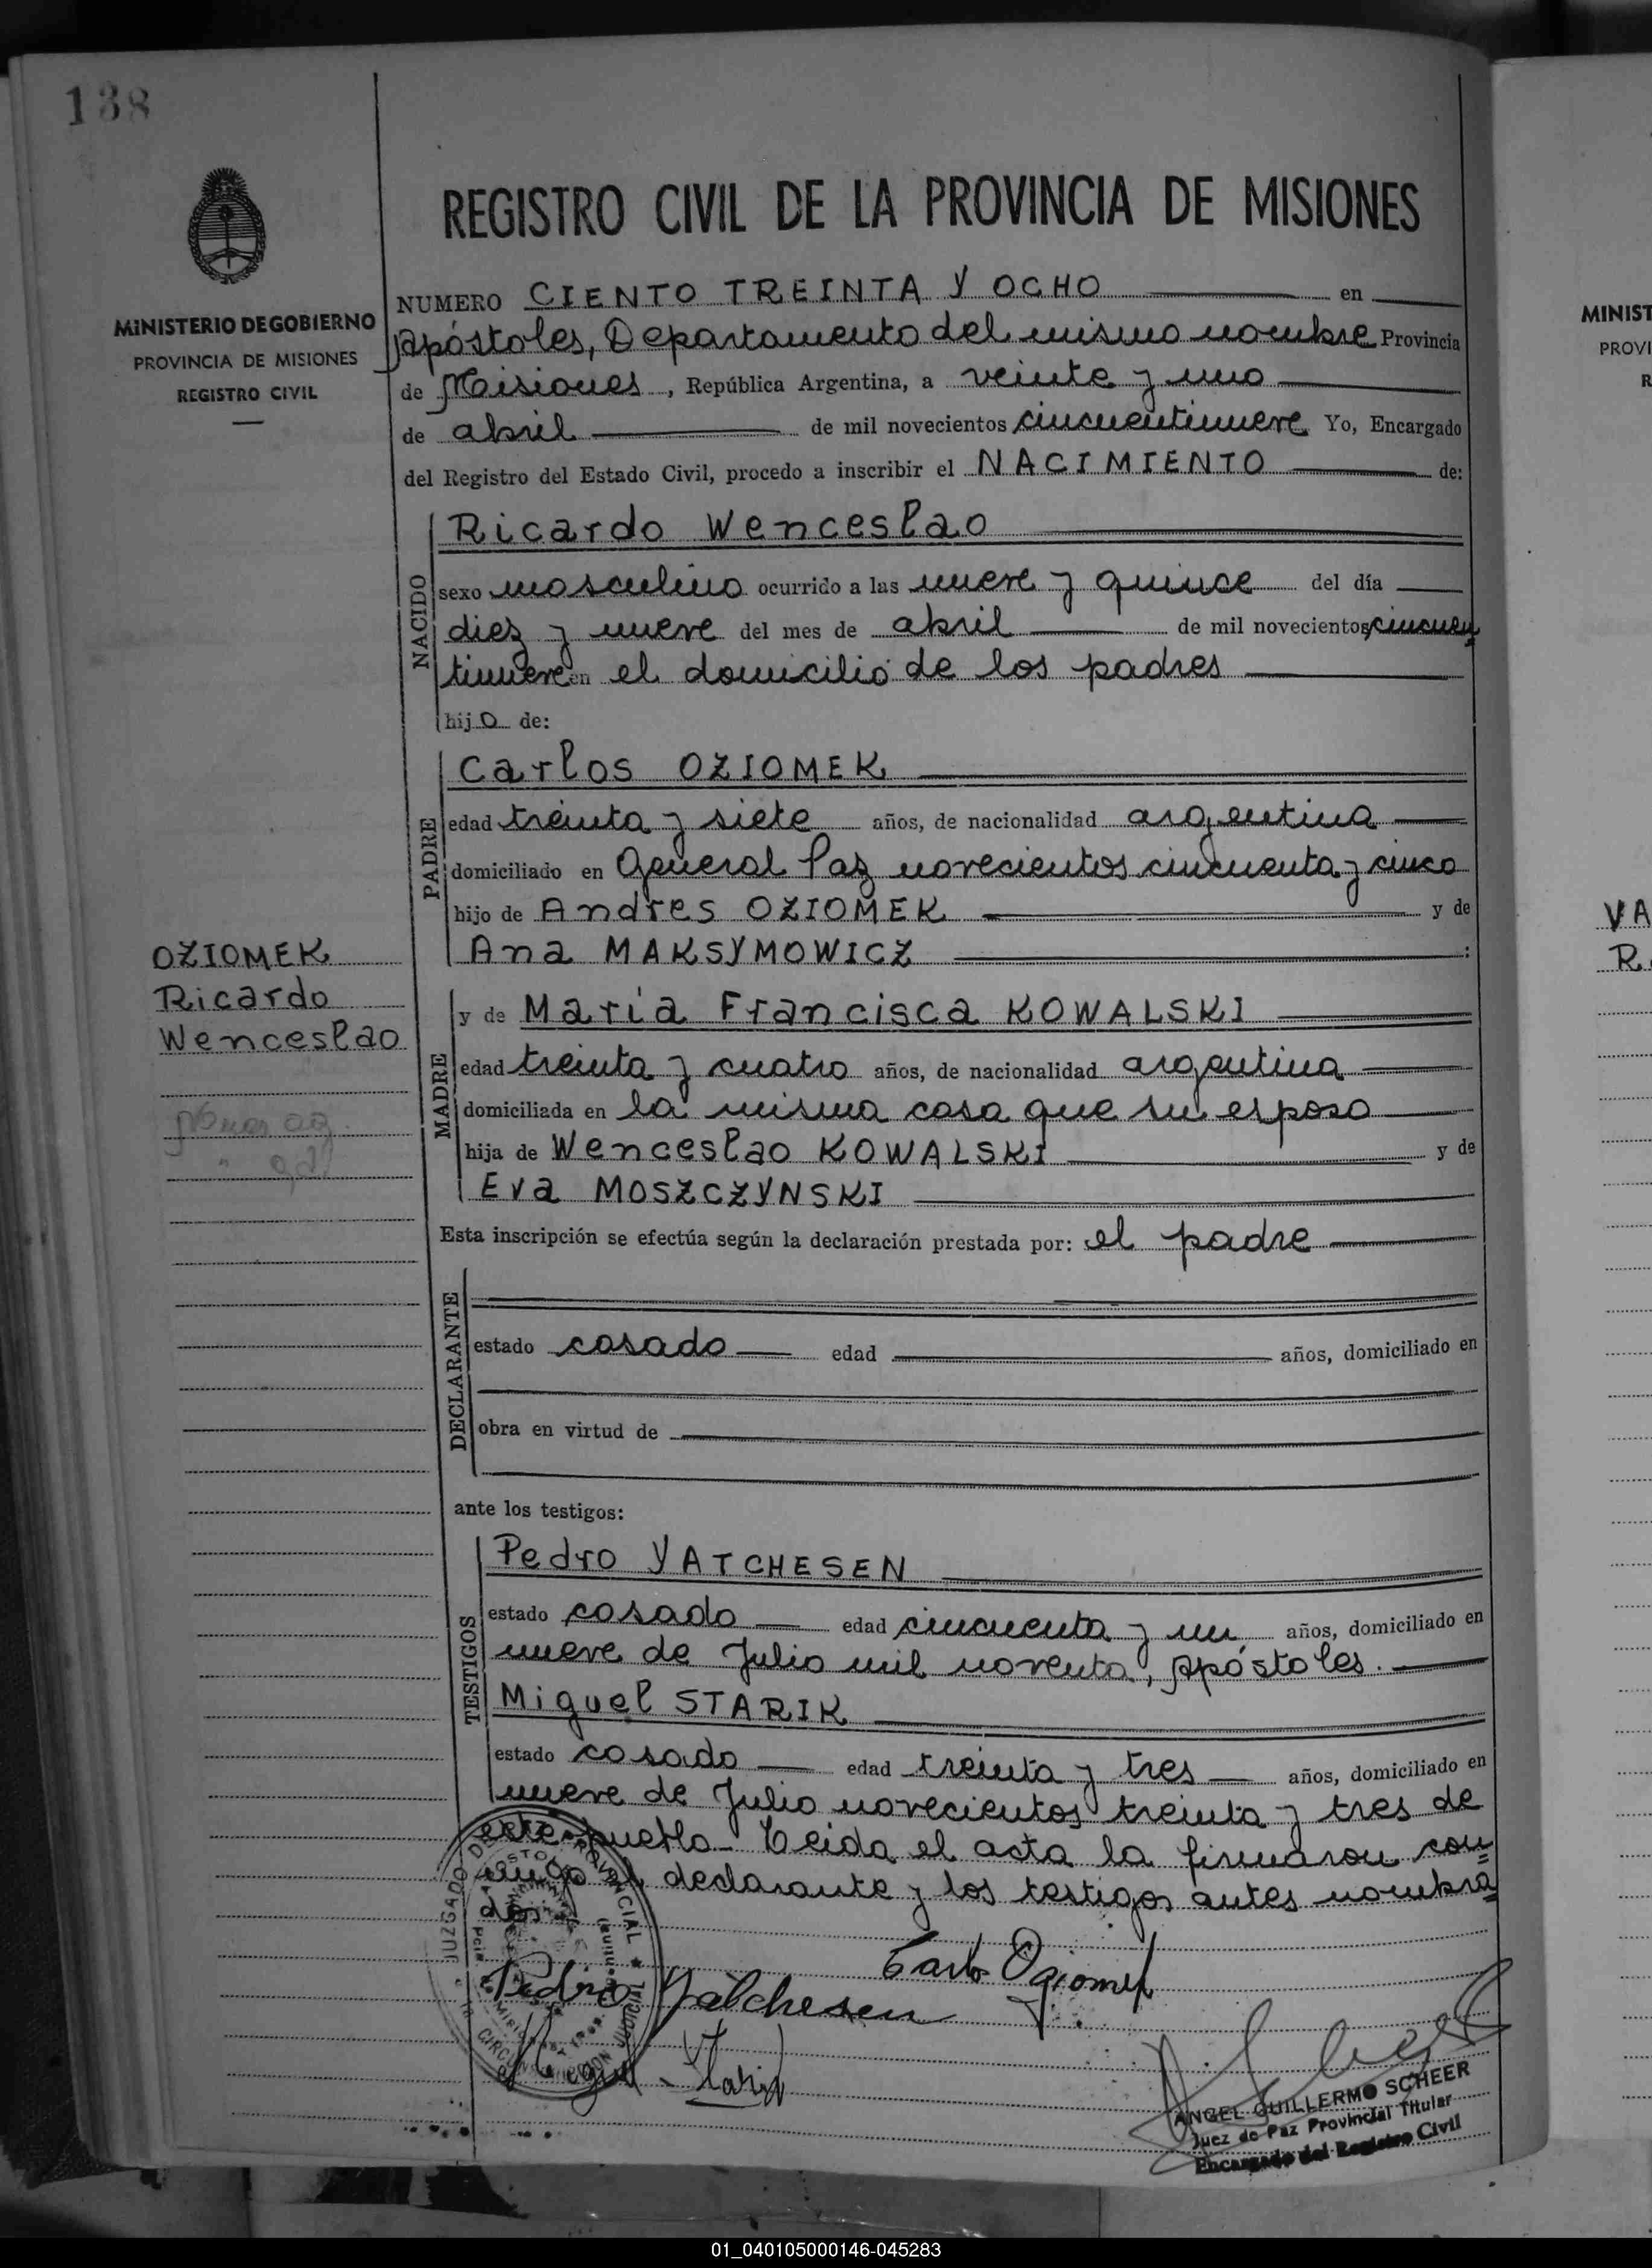 138
MINISTERIO DE GOBIERNO
PROVINCIA DE MISIONES
REGISTRO CIVIL
REGISTRO CIVIL DE LA PROVINCIA DE MISIONES
NUMERO CIENTO TREINTA Y OCHO en
Apóstoles, Departamento del mismo nombre Provincia
de Misiones, República Argentina, a veinte y uno
de abril de mil novecientos cincuentinueve Yo, Encargado
del Registro del Estado Civil, procedo a inscribir el NACIMIENTO de:
NACIDO
Ricardo Wenceslao
sexo masculino ocurrido a las nueve y quince del día
diez y nueve del mes de abril de mil novecientos cincuen
tinueve en el domicilio de los padres
hijo de:
PADRE
Carlos OZIOMEK
edad treinta y siete años, de nacionalidad argentina
domiciliado en General Paz novecientos cincuenta y cinco
hijo de Andres OZIOMEK y de
Ana MAKSYMOWICZ :
OZIOMEK
Ricardo
Wenceslao
MADRE
y de María Francisca KOWALSKI
edad treinta y cuatro años, de nacionalidad argentina
domiciliada en la misma casa que su esposo
hija de Wenceslao KOWALSKI y de
Eva MOSZCZYNSKI
Esta inscripción se efectúa según la declaración prestada por: el padre
DECLARANTE
estado casado edad años, domiciliado en
obra en virtud de
ante los testigos:
TESTIGOS
Pedro YATCHESEN
estado casado edad cincuenta y un años, domiciliado en
nueve de Julio mil noventa, Apóstoles.
Miguel STARIK
estado casado edad treinta y tres años, domiciliado en
nueve de Julio novecientos treinta y tres de
este pueblo- Leida el acta la firmaron con
migo el declarante y los testigos antes nombra
dos
Carlos Oziomek
Pedro Yatchesen
Miguel Starik
JUZGADO DE PAZ PROVINCIAL
ANGEL GUILLERMO SCHEER
Juez de Paz Provincial Titular
Encargado del Registro Civil
MINIST
PROVI
R
VA
R
01_040105000146-045283